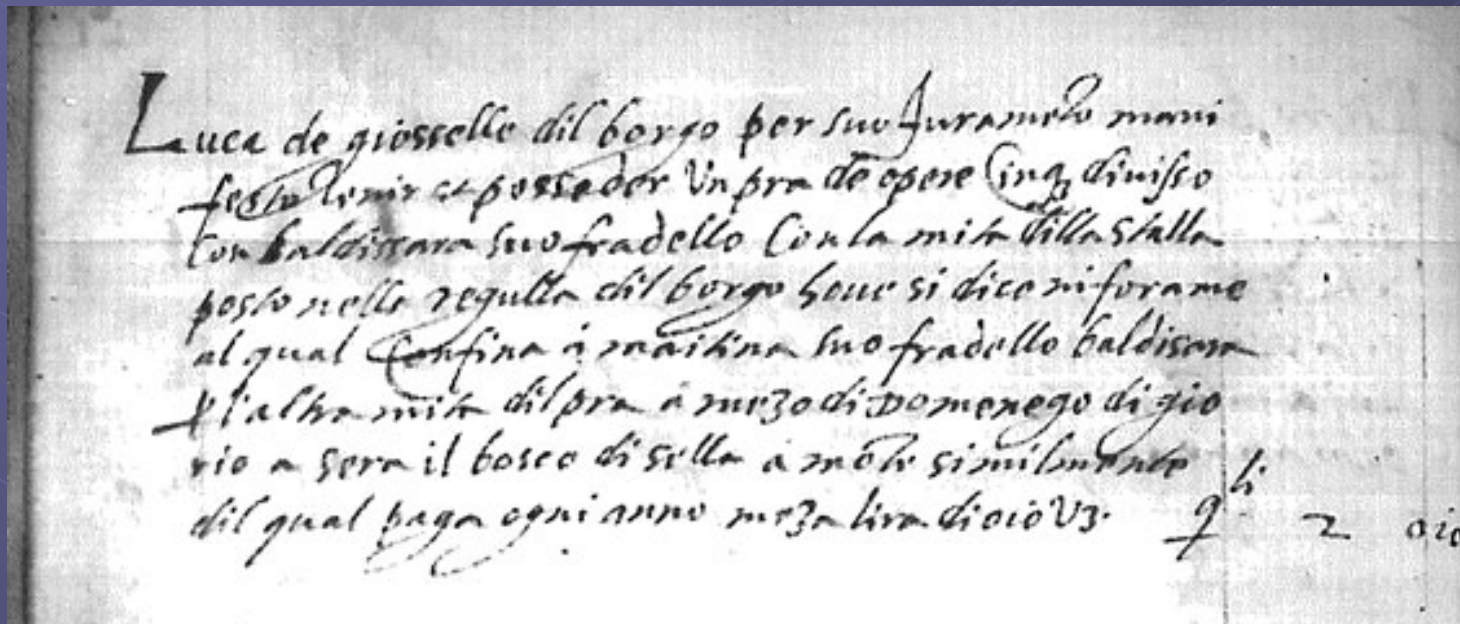 Luca de giosselle dil borgo per suo Juramēto mani
festo tenir et posseder Un pra de opere Cinq divisso
Con baldissara suo fradello Con la mita dilla stalla
posto nella regulla dil borgo houe si dice ni forame
al qual Confina à maitina suo fradello baldisara
ꝑ l'altra mita dil pra à mezo di Domenego di gio
rio a sera il bosco di sella à mōte similmente
dil qual paga ogni anno meza lira di oio Vz.
q li 2 oio